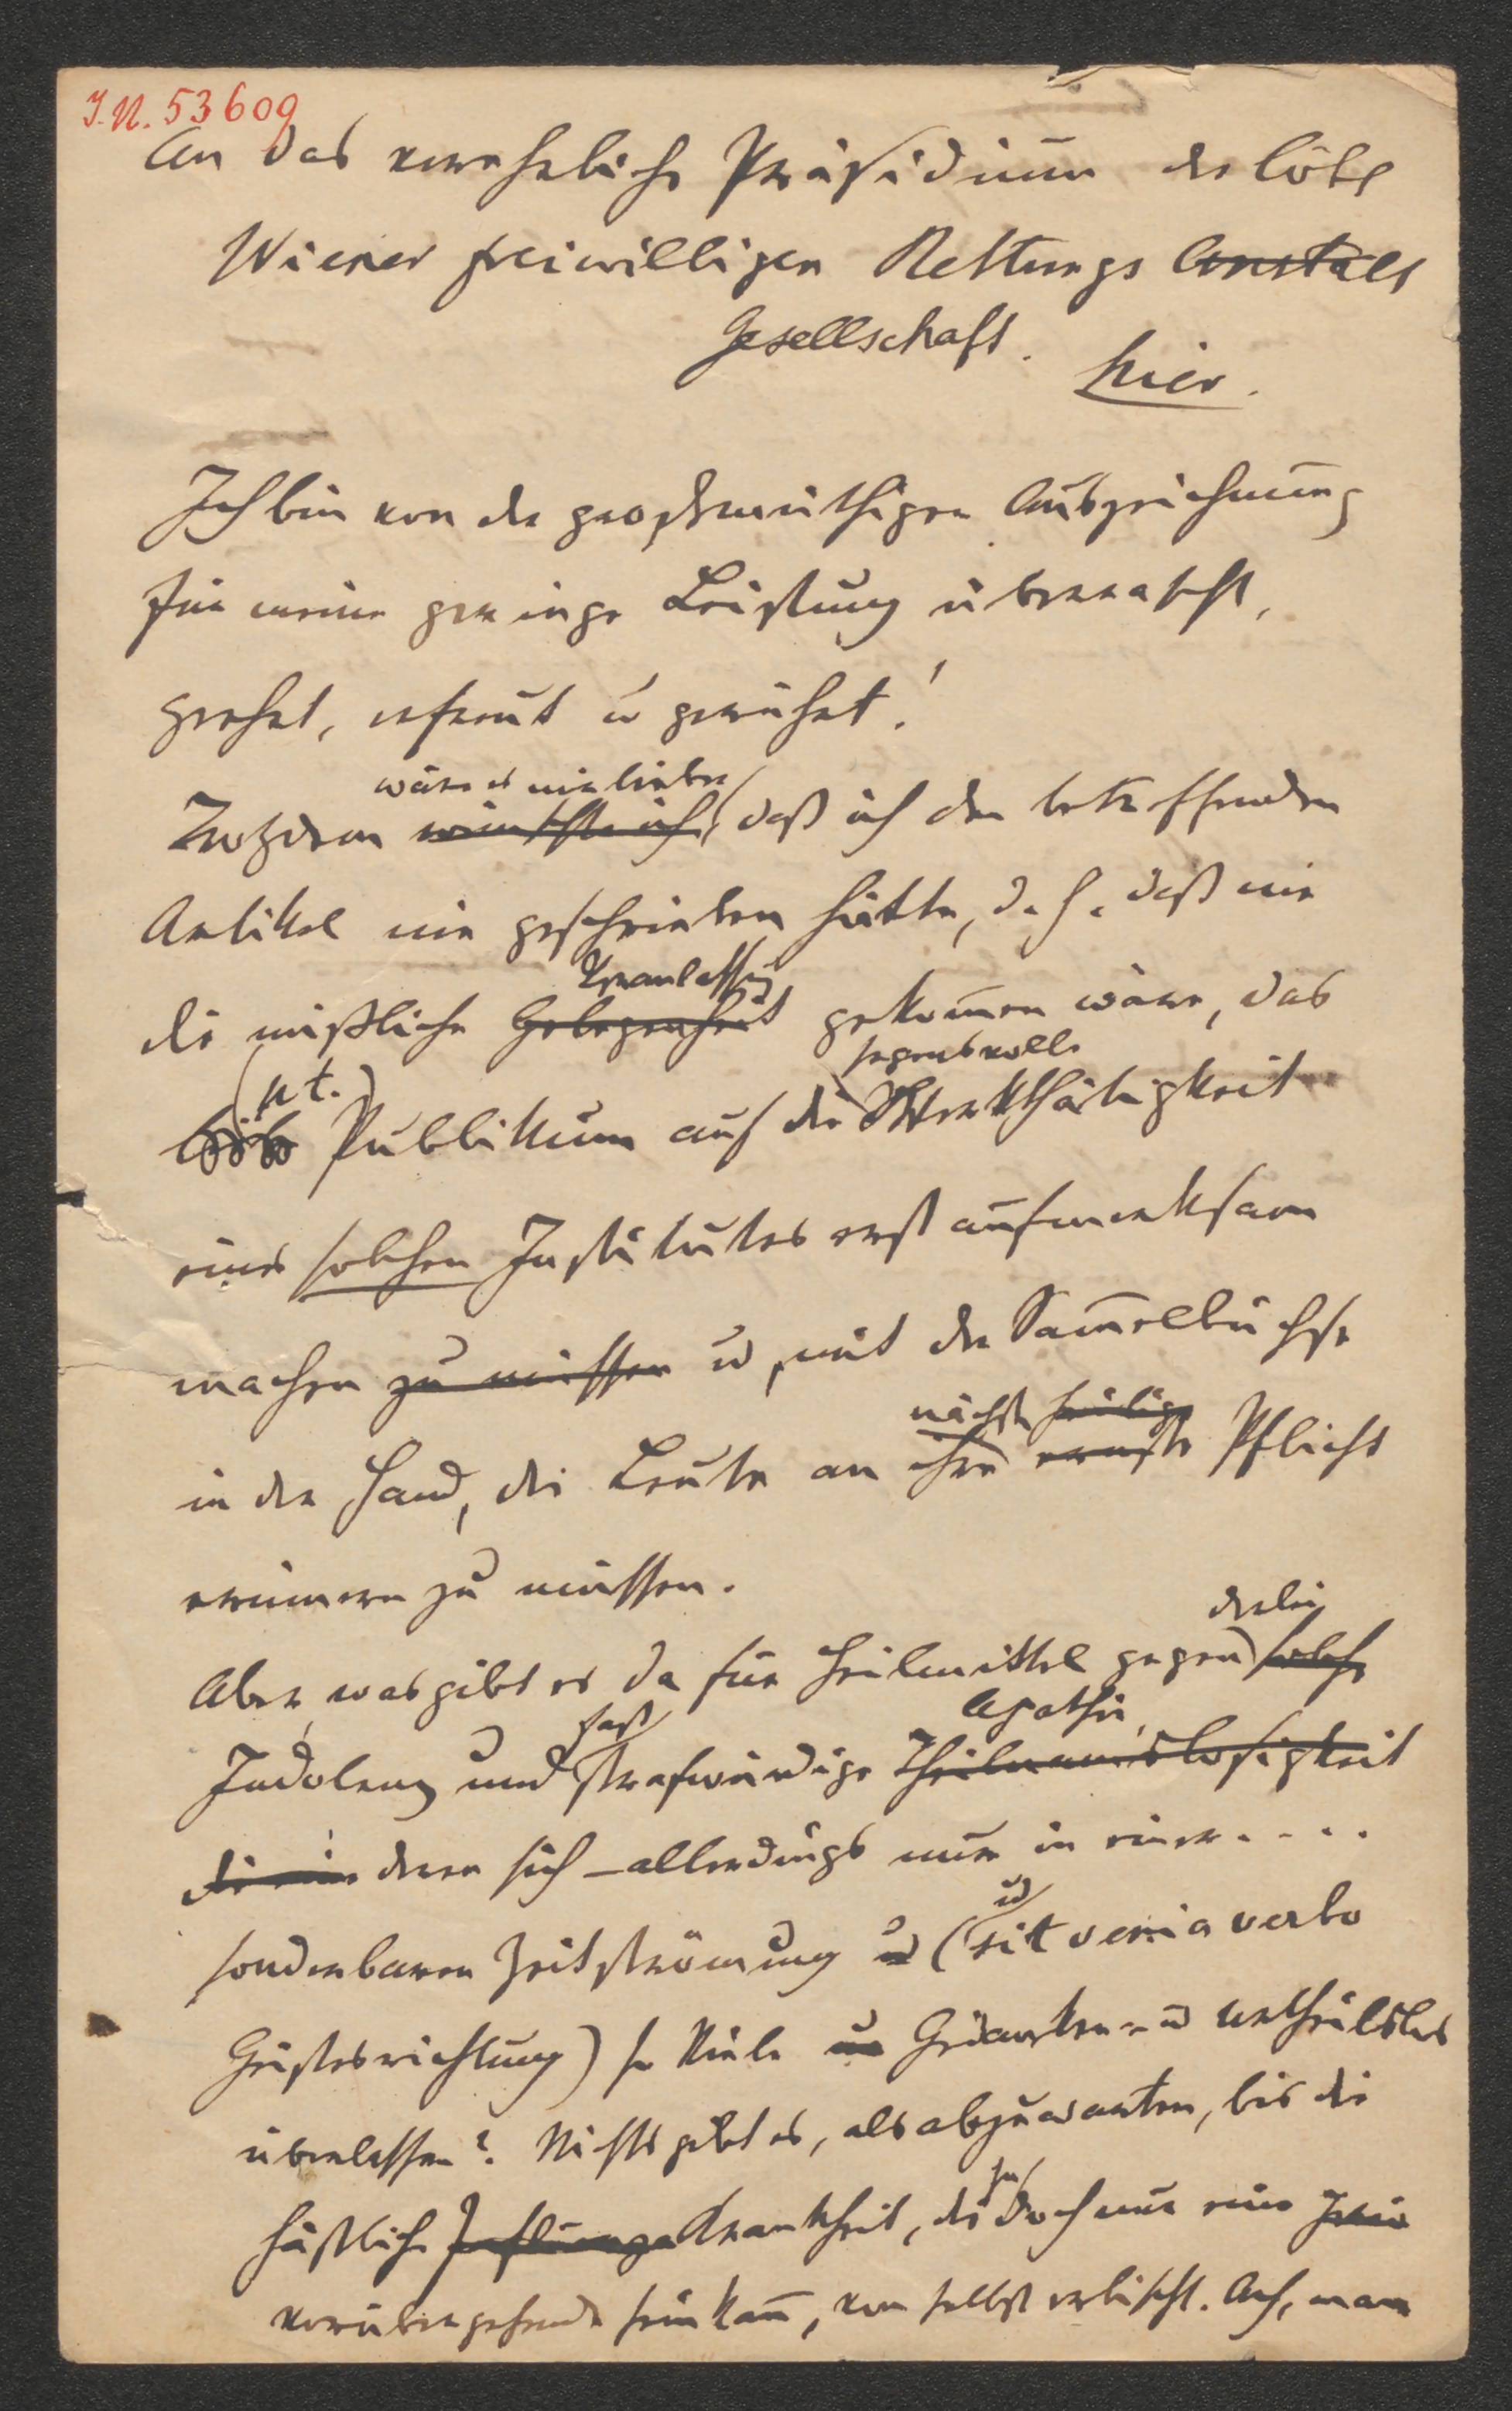 I.N. 53609
An das verehrliche Präsidium der löbl
Wiener freiwilligen Rettungs Anstalt
Gesellschaft.
hier.
Ich bin von der großmüthigen Auszeichnung
für meine geringe Leistung überrascht,
geehrt, erfreut u gerührt!
wäre es mir lieber
Trotzdem wünschte ich, daß ich den betreffenden
Artikel nie geschrieben hätte, d. h. daß nie
Veranlassung
die mißliche Gelegenheit gekom̄en wäre, das
segensvolle
(p t.)
löbl Publikum auf die Werkthätigkeit
eines solchen Institutes erst aufmerksam
machen zu müssen u, mit der Sam̄elbüchse
nächste heilige
in der Hand, die Leute an ihre ernste Pflicht
erinnern zu müssen.
derlei
Aber was gibt es da für Heilmittel gegen solche
fast
Apathie,
Indolenz und strafwürdige Theilnamslosigkeit
die eine deren sich – allerdings nur in einer . . . .
u
sonderbaren Zeitströmung u (sit venia verbo
Geistesrichtung) so Viele Gedanken- u urtheilslos
überlassen? Nichts gibt es, als abzuwarten, bis die
ja
häßliche Influenza Krankheit, die doch nur eine
vorübergehende sein kan̄, von selbst erlischt. Ach, man